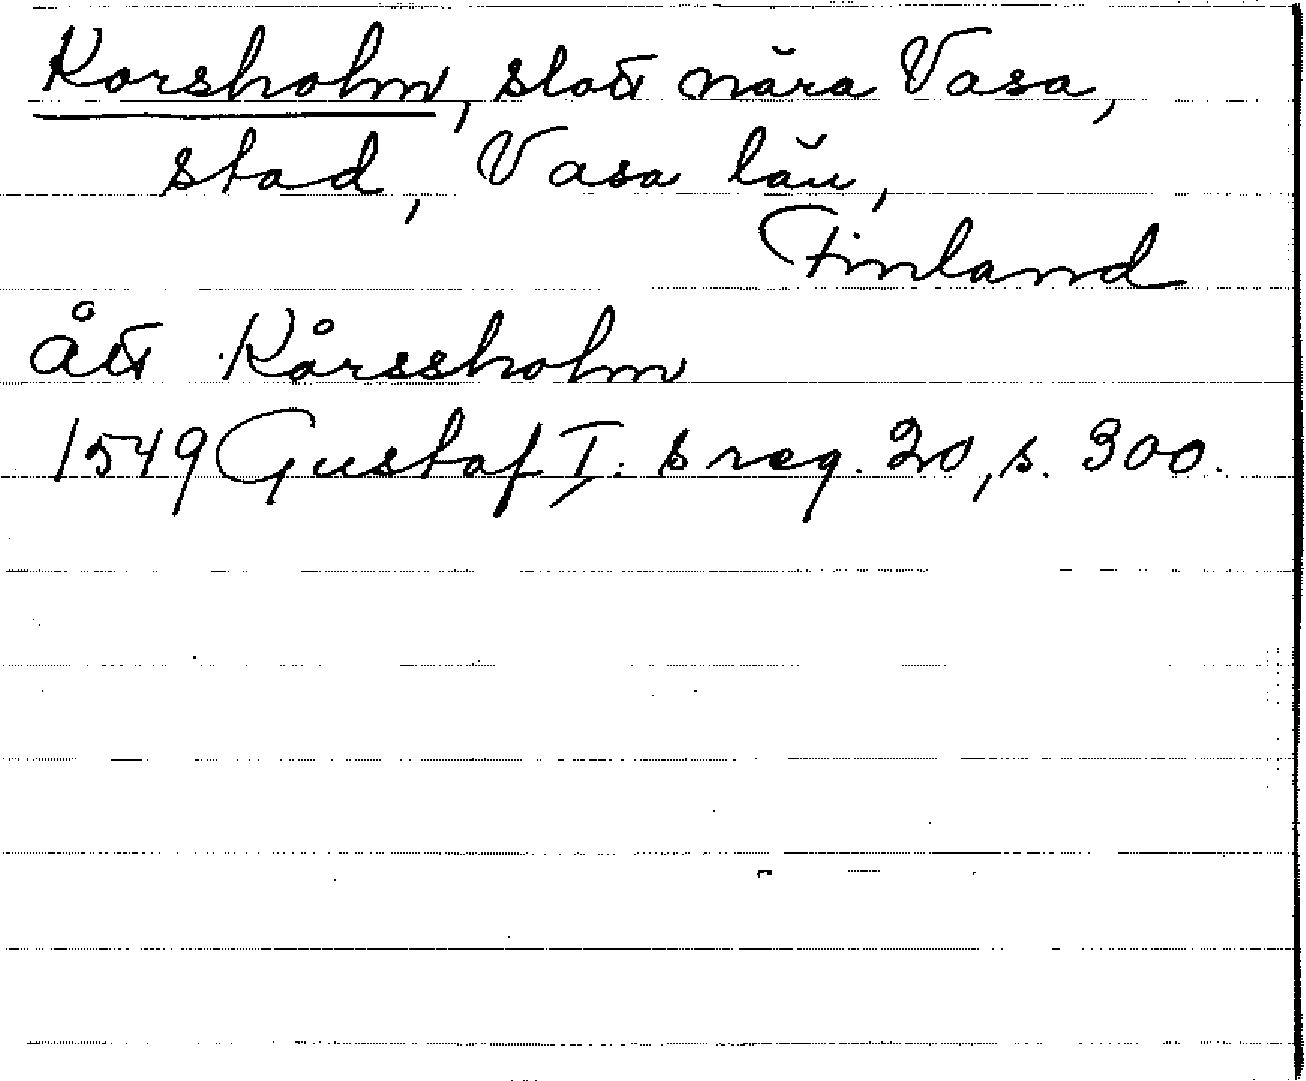 Korsholm, slott nära Vasa,
stad, Vasa län,
Finland
ått Kårssholm
1549 Gustaf I:s reg. 20, s. 300.